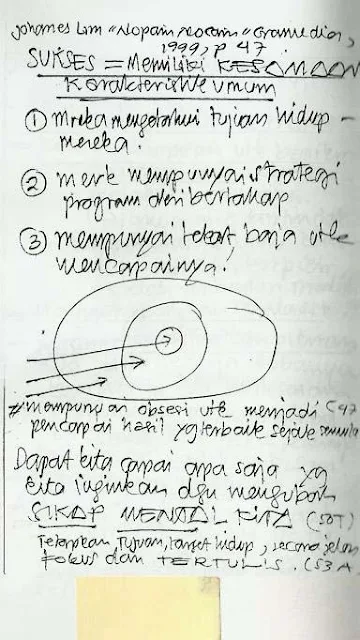 Johanes Lim "No pain no gain" Gramedia,
1999, p 47.
SUKSES = Memiliki KESAMAAN
Karakteristik umum
① Mreka mengetahui tujuan hidup -
mereka.
② merk mempunyai strategi
program dari bertahap
③ mempunyai tekat baja utk
mencapainya!
# mempunyai obsesi utk menjadi
pencapai hasil yg terbaik sejak semula
Dapat kita capai apa saja yg
kita inginkan dgn mengubah
SIKAP MENTAL KITA (50T)
Tetapkan, tujuan, target hidup, secara jelas
Fokus dan TERTULIS. (53A